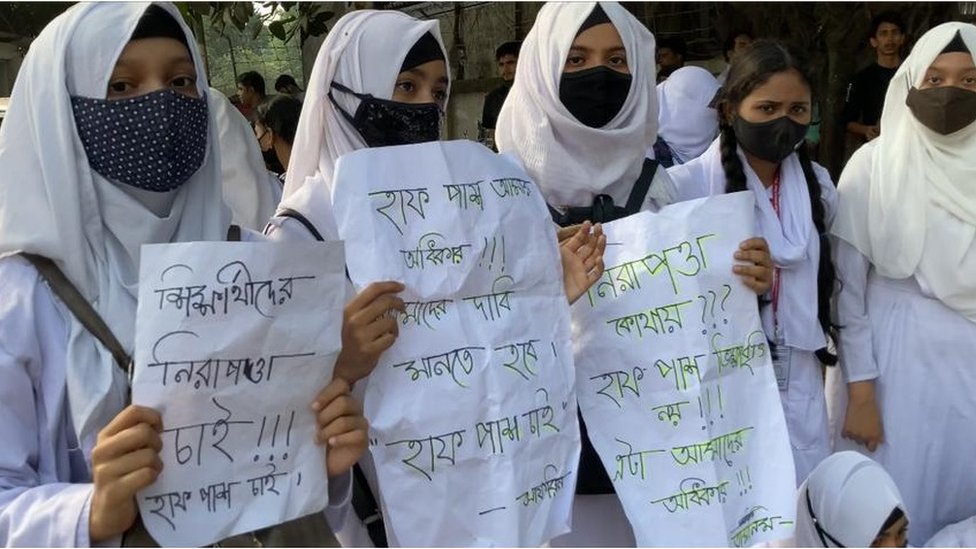 শিক্ষার্থীদের
নিরাপত্তা
চাই!!!
হাফ পাশ চাই।
হাফ পাশ আমার
অধিকার!!!
দের দাবি
মানতে হবে।
"হাফ পাশ চাই"
নিরাপত্তা
কোথায়???
হাফ পাশ
নয়!!!
এটা আমাদের
অধিকার!!!